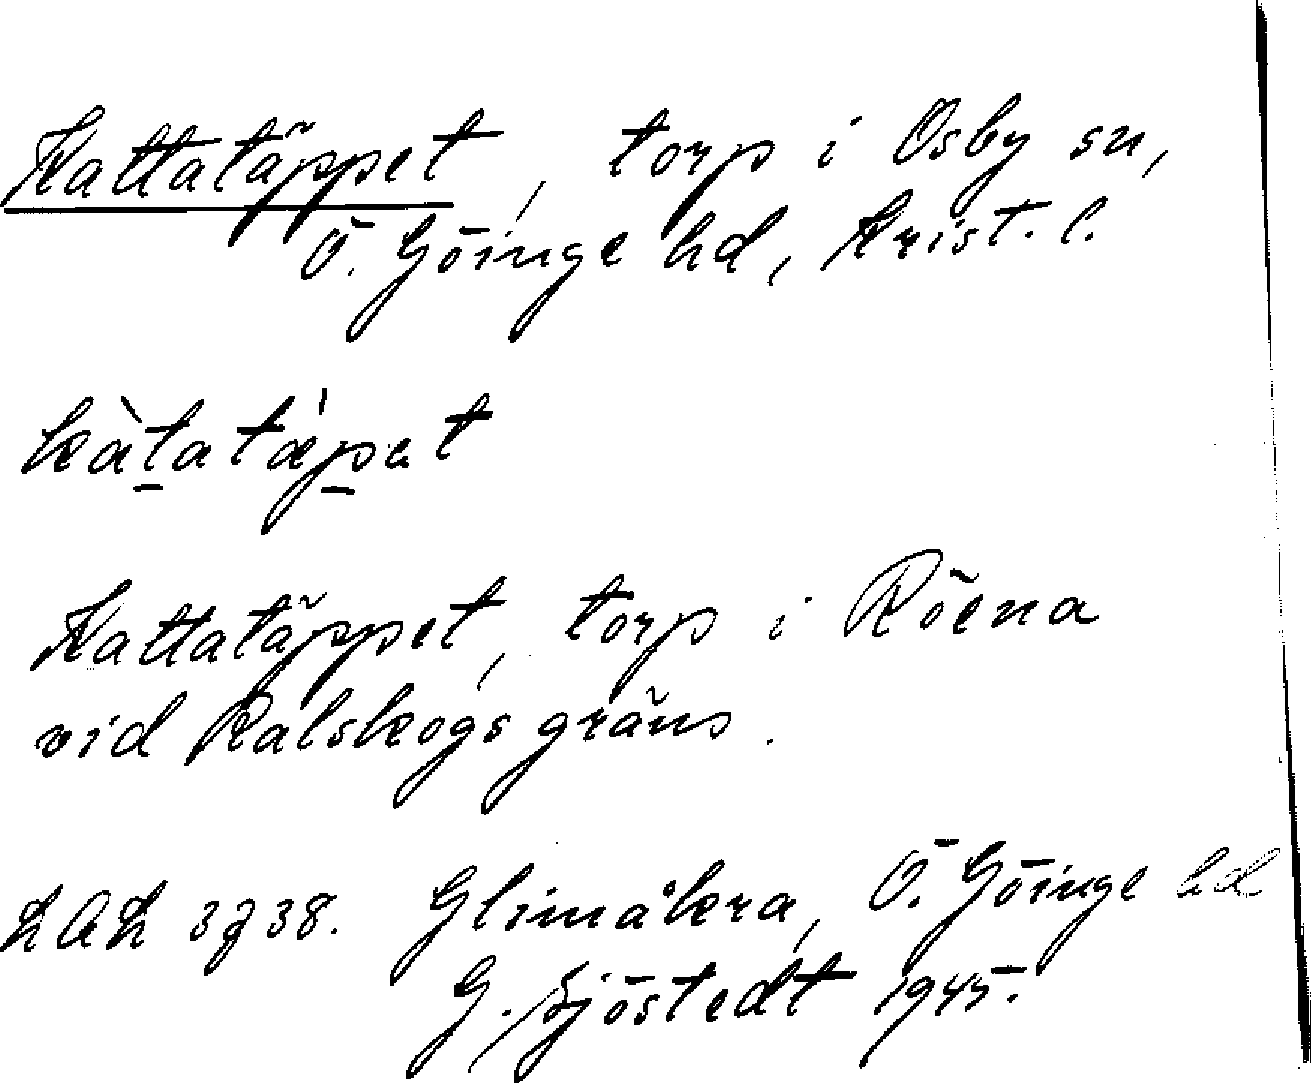 Kattatäppet, torp i Osby sn,
Ö. Göinge hd, Krist. l.
kàtatæ̀pat
Kattatäppet, torp i Röena
vid Kalskogs gräns.
LAL 3738. Glimåkra, Ö. Göinge hd
G. Sjöstedt 1945.